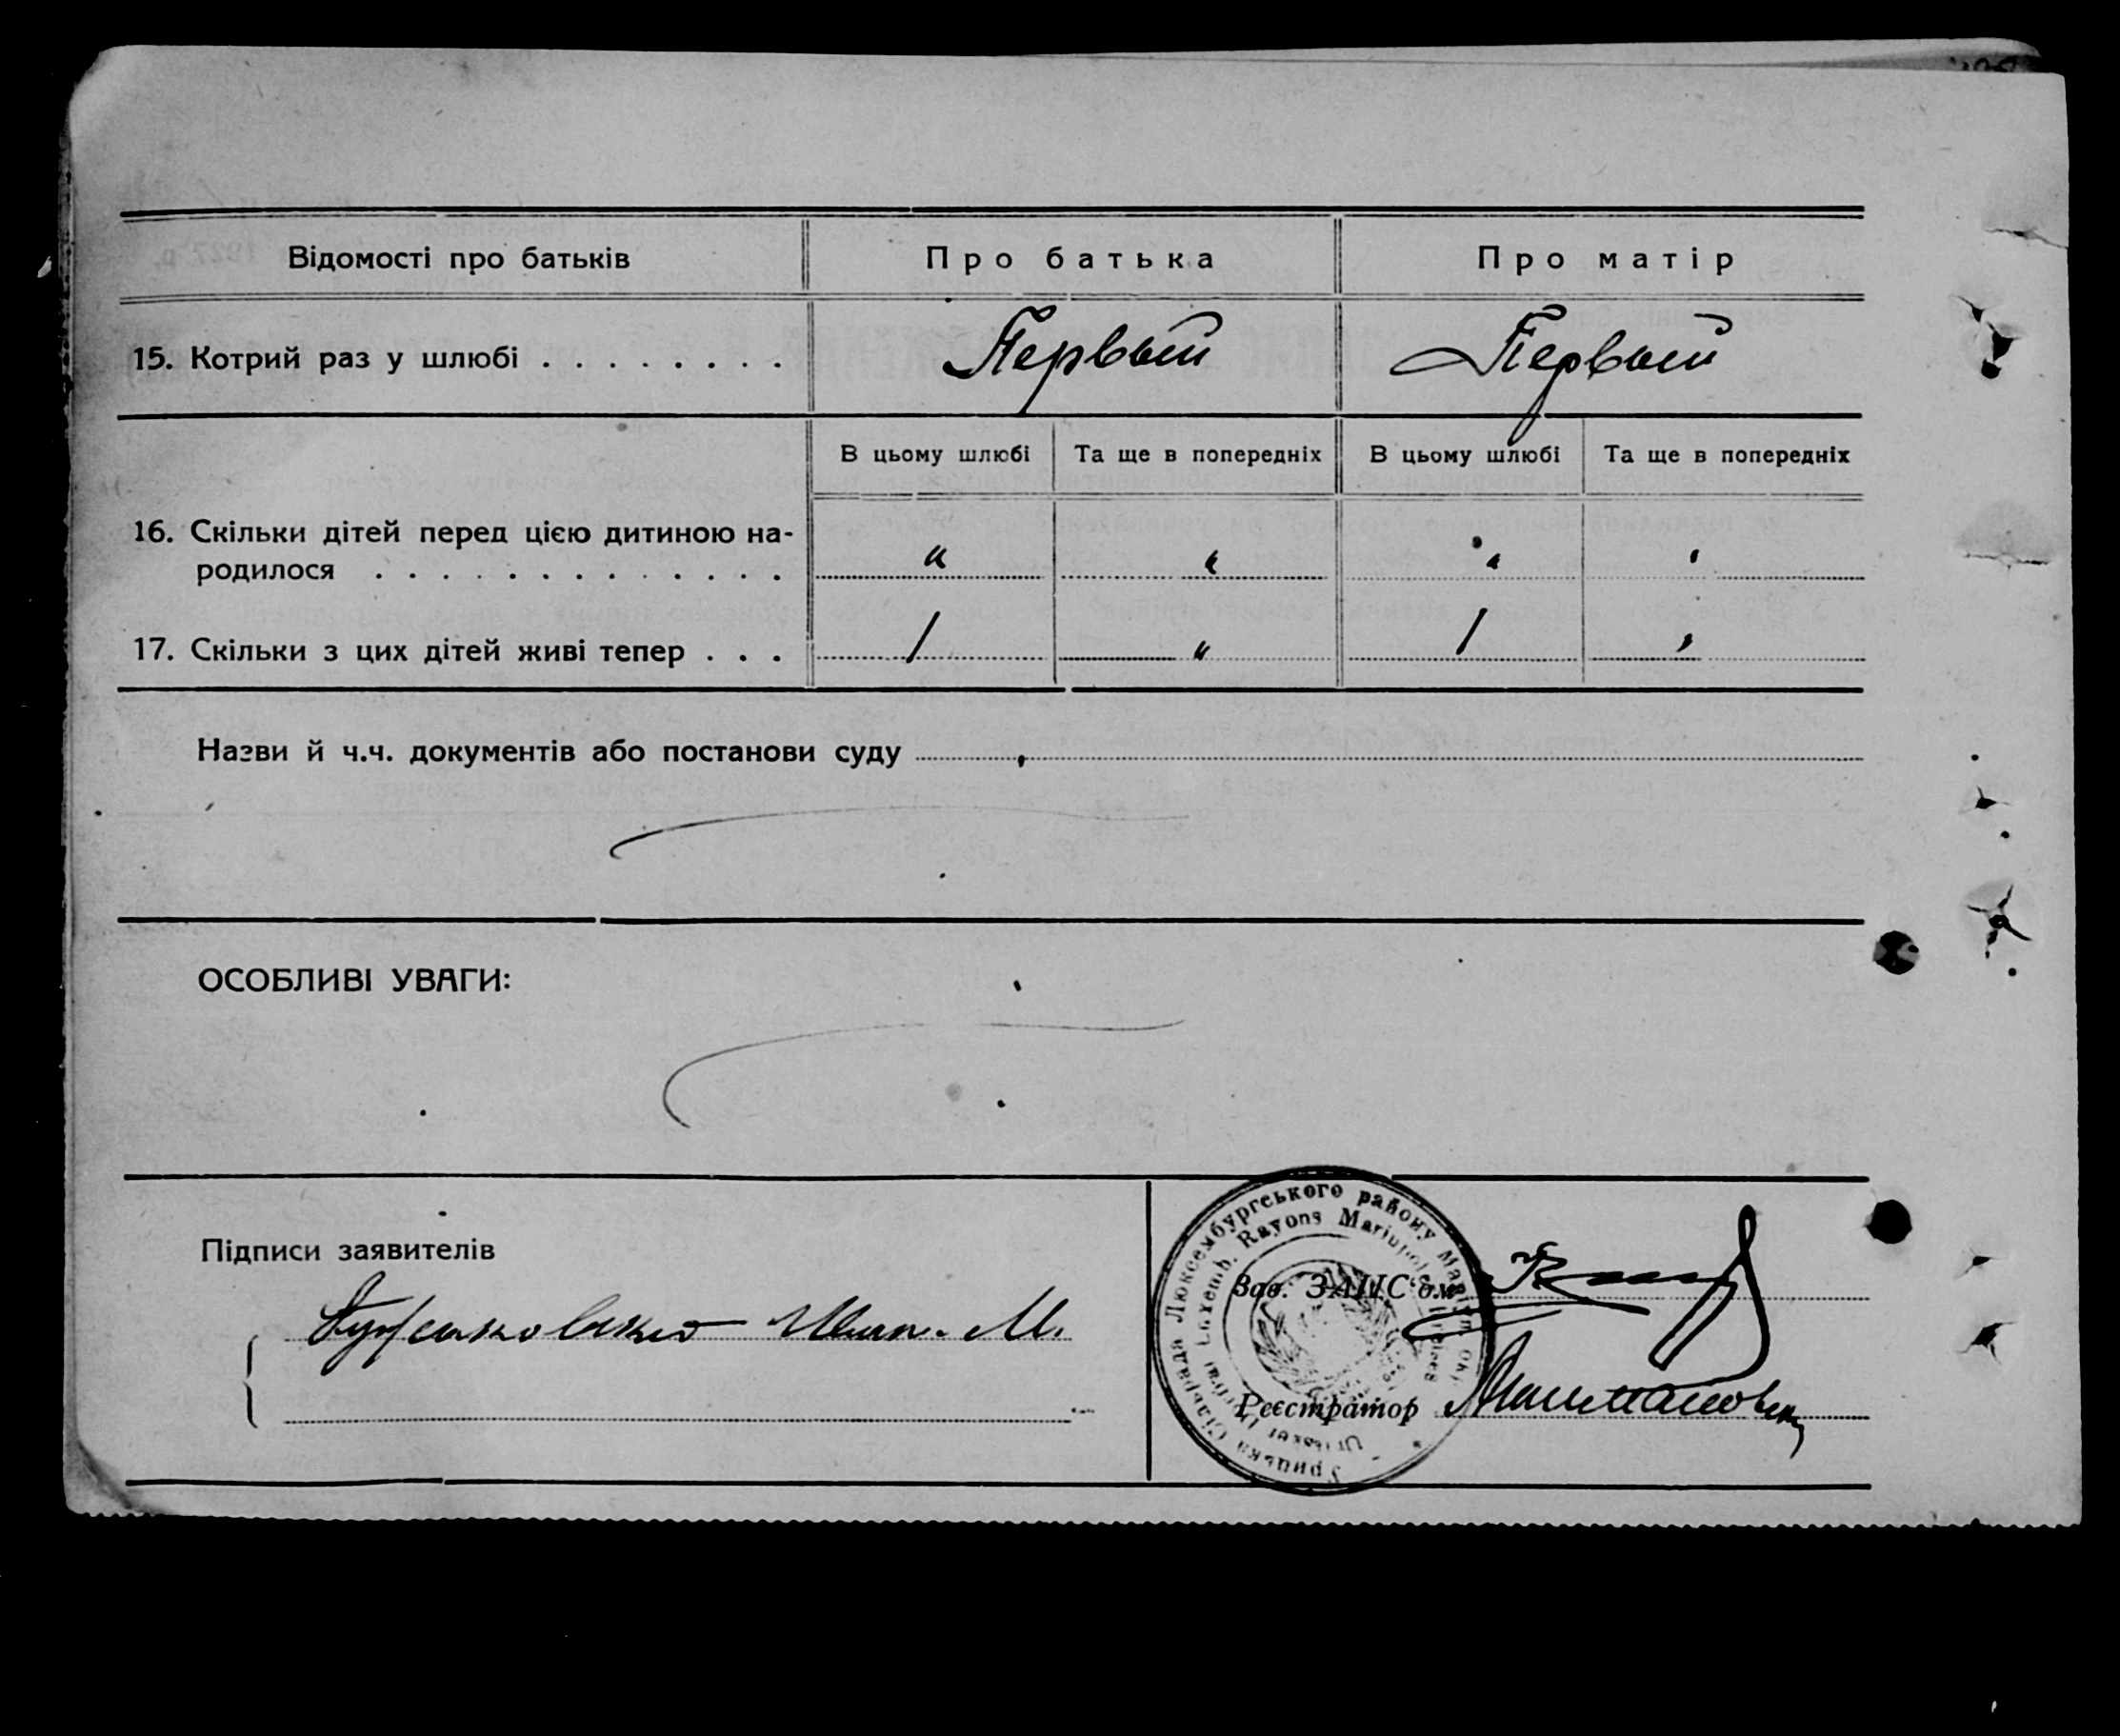 Відомості про батьків
Про батька
Про матір
15. Котрий раз у шлюбі . . . . . . . .
Первый
Первый
В цьому шлюбі
Та ще в попередніх
В цьому шлюбі
Та ще в попередніх
16. Скільки дітей перед цією дитиною на-
родилося . . . . . . . . . . . . .
"
"
"
17. Скільки з цих дітей живі тепер . . .
/
"
/
Назви й ч.ч. документів або постанови суду
ОСОБЛИВІ УВАГИ:
Підписи заявителів
М.
Зав. ЗАЦС'ом
Реєстратор
Урицька Сільрада Люксембургського району Маріуп. окр.
Luxemb. Rayons Mariupoler Kreises